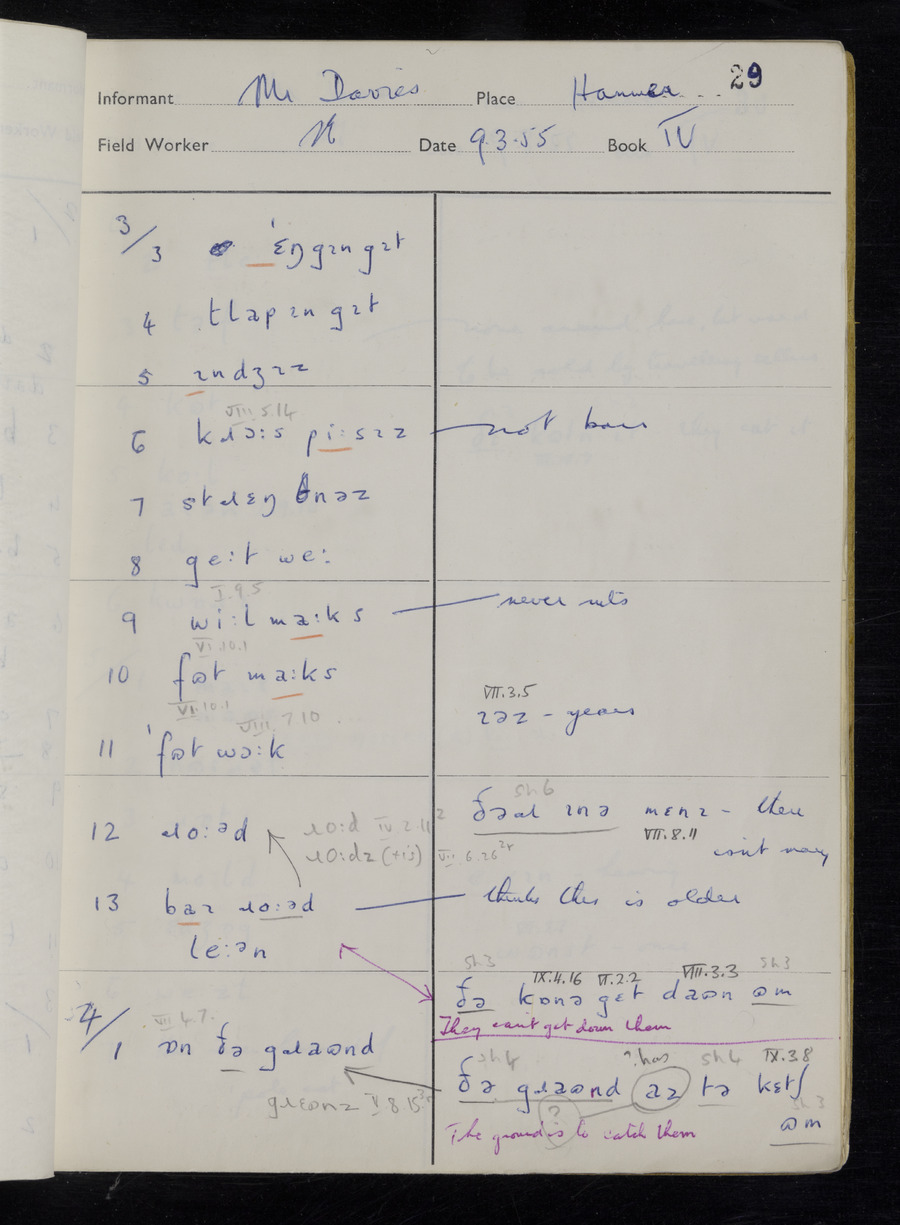 29
Informant Mr Davies Place Hanmer
Field Worker Date 9.3.55 Book IV
3/3 ˈɛŋgɪn gɪt
4 tlapɪn gɪt
5 ɪndʒɪz
VIII.5.14
6 kɹɔːs piːsɪz not bars
7 stɹɛŋθnəz
8 geːt weː
I.9.5
9 wiːl maːks never ruts
VI.10.1
10 fʊt maːks
VII.3.5
ɪəz - years
VI.10.1 VIII.7.10
11 ˈfʊt wɔːk
sh 6
ðəɹ ɪnə mɛnɪ - there
VII.8.11
isn't many
12 ɹoːəd ɹoːd IV.2.11
ɹoːdz (+is) VII.6.26
13 baɪ ɹoːəd thinks this is older
leːən
sh.3 IX.4.16 VI.2.2 VIII.3.3 sh3
ðə kɒnə gɛt daʊn ʊm
They can't get down them
4/
VII.4.7.
1 ɒn ðə gɹaʊnd
sh4 ?has sh4 IX.3.8
ðə gɹaʊnd az tə kɛtʃ
sh3
ʊm
?
gɹɛʊnz V.8.15
The ground is to catch them